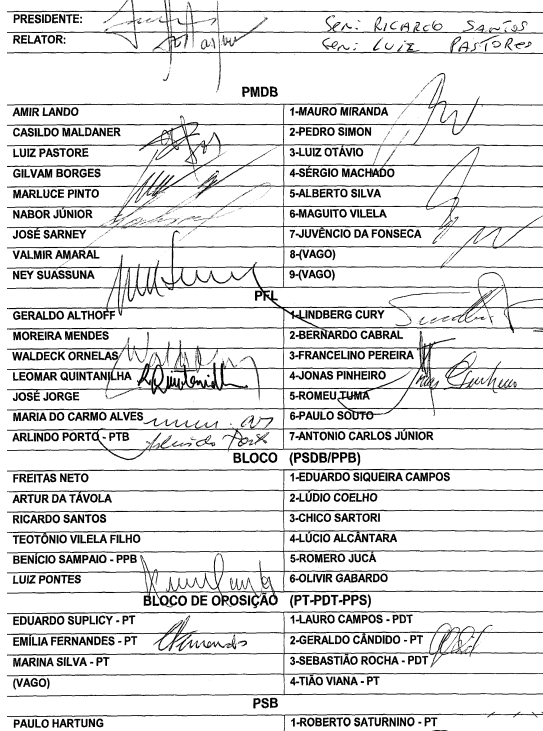 PRESIDENTE: Sen: RICARDO SANTOS
RELATOR: Sen: LUIZ PASTORE
PMDB
AMIR LANDO 1-MAURO MIRANDA
CASILDO MALDANER 2-PEDRO SIMON
LUIZ PASTORE 3-LUIZ OTÁVIO
GILVAM BORGES 4-SÉRGIO MACHADO
MARLUCE PINTO 5-ALBERTO SILVA
NABOR JÚNIOR 6-MAGUITO VILELA
JOSÉ SARNEY 7-JUVÊNCIO DA FONSECA
VALMIR AMARAL 8-(VAGO)
NEY SUASSUNA 9-(VAGO)
PFL
GERALDO ALTHOFF 1-LINDBERG CURY
MOREIRA MENDES 2-BERNARDO CABRAL
WALDECK ORNELAS 3-FRANCELINO PEREIRA
LEOMAR QUINTANILHA 4-JONAS PINHEIRO
JOSÉ JORGE 5-ROMEU TUMA
MARIA DO CARMO ALVES 6-PAULO SOUTO
ARLINDO PORTO - PTB Arlindo Porto 7-ANTONIO CARLOS JÚNIOR
BLOCO (PSDB/PPB)
FREITAS NETO 1-EDUARDO SIQUEIRA CAMPOS
ARTUR DA TÁVOLA 2-LÚDIO COELHO
RICARDO SANTOS 3-CHICO SARTORI
TEOTÔNIO VILELA FILHO 4-LÚCIO ALCÂNTARA
BENÍCIO SAMPAIO - PPB 5-ROMERO JUCÁ
LUIZ PONTES 6-OLIVIR GABARDO
BLOCO DE OPOSIÇÃO (PT-PDT-PPS)
EDUARDO SUPLICY - PT 1-LAURO CAMPOS - PDT
EMÍLIA FERNANDES - PT 2-GERALDO CÂNDIDO - PT
MARINA SILVA - PT 3-SEBASTIÃO ROCHA - PDT
(VAGO) 4-TIÃO VIANA - PT
PSB
PAULO HARTUNG 1-ROBERTO SATURNINO - PT